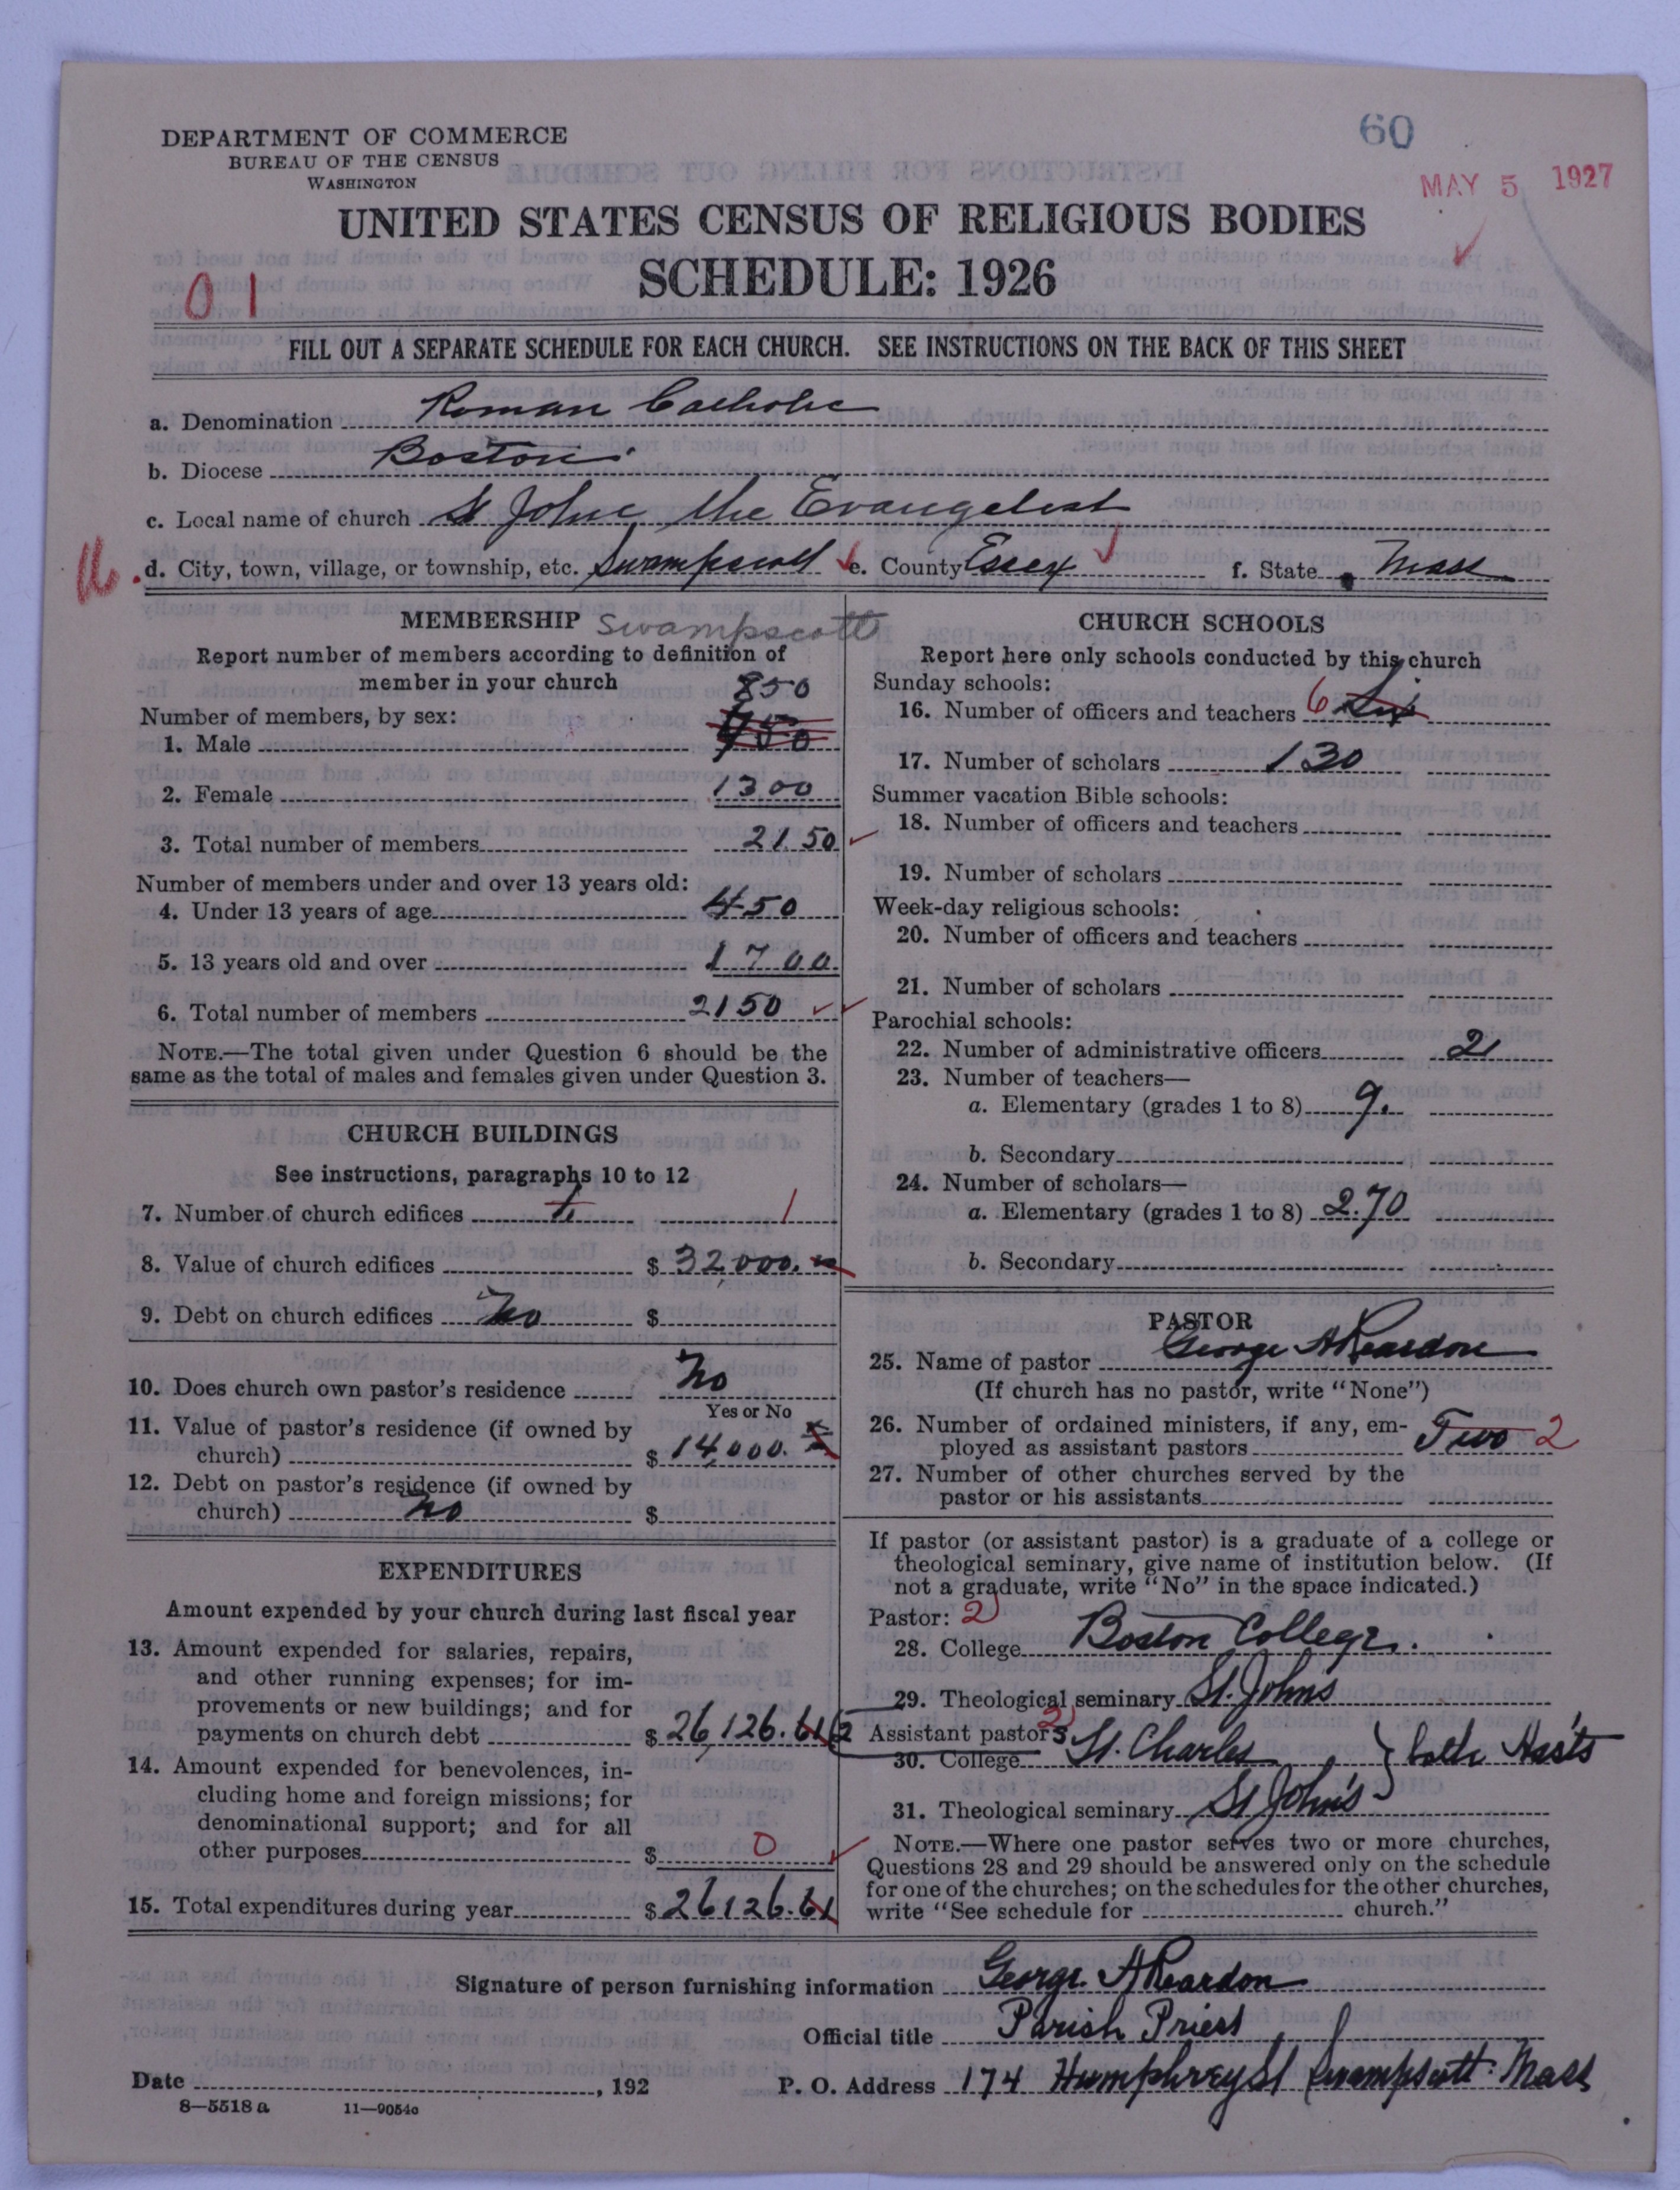 60
MAY 5 1927
DEPARTMENT OF COMMERCE
BUREAU OF THE CENSUS
WASHINGTON
UNITED STATES CENSUS OF RELIGIOUS BODIES
SCHEDULE: 1926
01
FILL OUT A SEPARATE SCHEDULE FOR EACH CHURCH. SEE INSTRUCTIONS ON THE BACK OF THIS SHEET
a. Denomination Roman Catholic
b. Diocese Boston
c. Local name of church St John the Evangelist
d. City, town, village, or township, etc. Swampscott e. County Essex f. State Mass
MEMBERSHIP Swampscott
Report number of members according to definition of
member in your church
850
Number of members, by sex:
1. Male 950
2. Female 1300
3. Total number of members 2150
Number of members under and over 13 years old:
4. Under 13 years of age 450
5. 13 years old and over 1700
6. Total number of members 2150
NOTE.—The total given under Question 6 should be the
same as the total of males and females given under Question 3.
CHURCH BUILDINGS
See instructions, paragraphs 10 to 12
7. Number of church edifices 1 1
8. Value of church edifices $ 32,000.
9. Debt on church edifices No $
10. Does church own pastor's residence No
Yes or No
11. Value of pastor's residence (if owned by
church) $ 14,000.
12. Debt on pastor's residence (if owned by
church) No $
EXPENDITURES
Amount expended by your church during last fiscal year
13. Amount expended for salaries, repairs,
and other running expenses; for im-
provements or new buildings; and for
payments on church debt $ 26,126.61
14. Amount expended for benevolences, in-
cluding home and foreign missions; for
denominational support; and for all
other purposes $ 0
15. Total expenditures during year $ 26126.61
CHURCH SCHOOLS
Report here only schools conducted by this church
Sunday schools:
16. Number of officers and teachers 6 Six
17. Number of scholars 130
Summer vacation Bible schools:
18. Number of officers and teachers
19. Number of scholars
Week-day religious schools:
20. Number of officers and teachers
21. Number of scholars
Parochial schools:
22. Number of administrative officers 2
23. Number of teachers—
a. Elementary (grades 1 to 8) 9.
b. Secondary
24. Number of scholars—
a. Elementary (grades 1 to 8) 270
b. Secondary
PASTOR
25. Name of pastor George A Reardon
(If church has no pastor, write "None")
26. Number of ordained ministers, if any, em-
ployed as assistant pastors Two 2
27. Number of other churches served by the
pastor or his assistants
If pastor (or assistant pastor) is a graduate of a college or
theological seminary, give name of institution below. (If
not a graduate, write "No" in the space indicated.)
Pastor: 2
28. College Boston College.
29. Theological seminary St. John's
(2 Assistant pastors 2
30. College St. Charles } both Assts
31. Theological seminary St John's
NOTE.—Where one pastor serves two or more churches,
Questions 28 and 29 should be answered only on the schedule
for one of the churches; on the schedules for the other churches,
write "See schedule for church."
Signature of person furnishing information George A Reardon
Official title Parish Priest
Date , 192 P. O. Address 174 Humphrey St Swampscott Mass
8—5518a 11—9054c